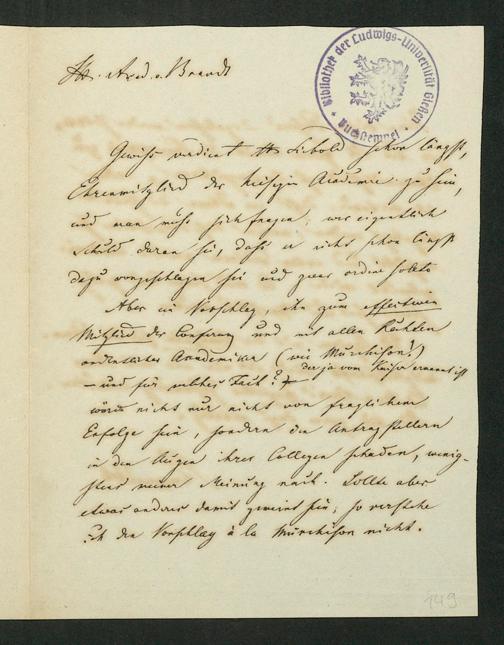 Bibliothek der Ludwigs-Universität Gießen
Buchstempel
Hr. Acad. v. Brandt
Gewiß verdient Hr Siebold schon längst,
Ehrenmitglied der hiesigen Academie zu sein,
und man muß sich fragen, wer eigentlich
Schuld daran sei, daß er nicht schon längst
dazu vorgeschlagen sei und zwar
Aber ein Vorschlag, ihn zum effectiven
Mitglied der und mit allen Rechten
ordentlicher Academiker (wie Murchison!)
der ja vom Kaiser ernannt ist
– und für welches Fach? –
würde nicht nur nicht von fraglichem
Erfolge sein, sondern den Antragstellern
in den Augen ihrer Collegen schaden, wenig-
stens meiner Meinung nach. Sollte aber
etwas anderes damit gemeint sein, so verstehe
ich den Vorschlag à la Murchison nicht.
149